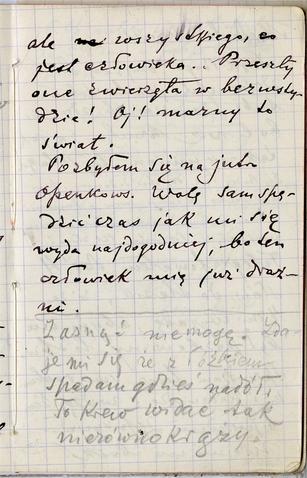 ale wszystkiego, co
jest człowieka.. Przeszły
one zwierzęta w bezwsty-
dzie! Oj! marny to
świat.
Pozbyłem się na jutro
Openkows. Wolę sam spę-
dzić czas jak mi się
wyda najdogodniej, bo ten
człowiek mię już draż-
ni.
Zasnąć nie mogę. Zda
je mi się że z łóżkiem
spadam gdzieś nadół.
To krew widać tak
nierówno krąży.